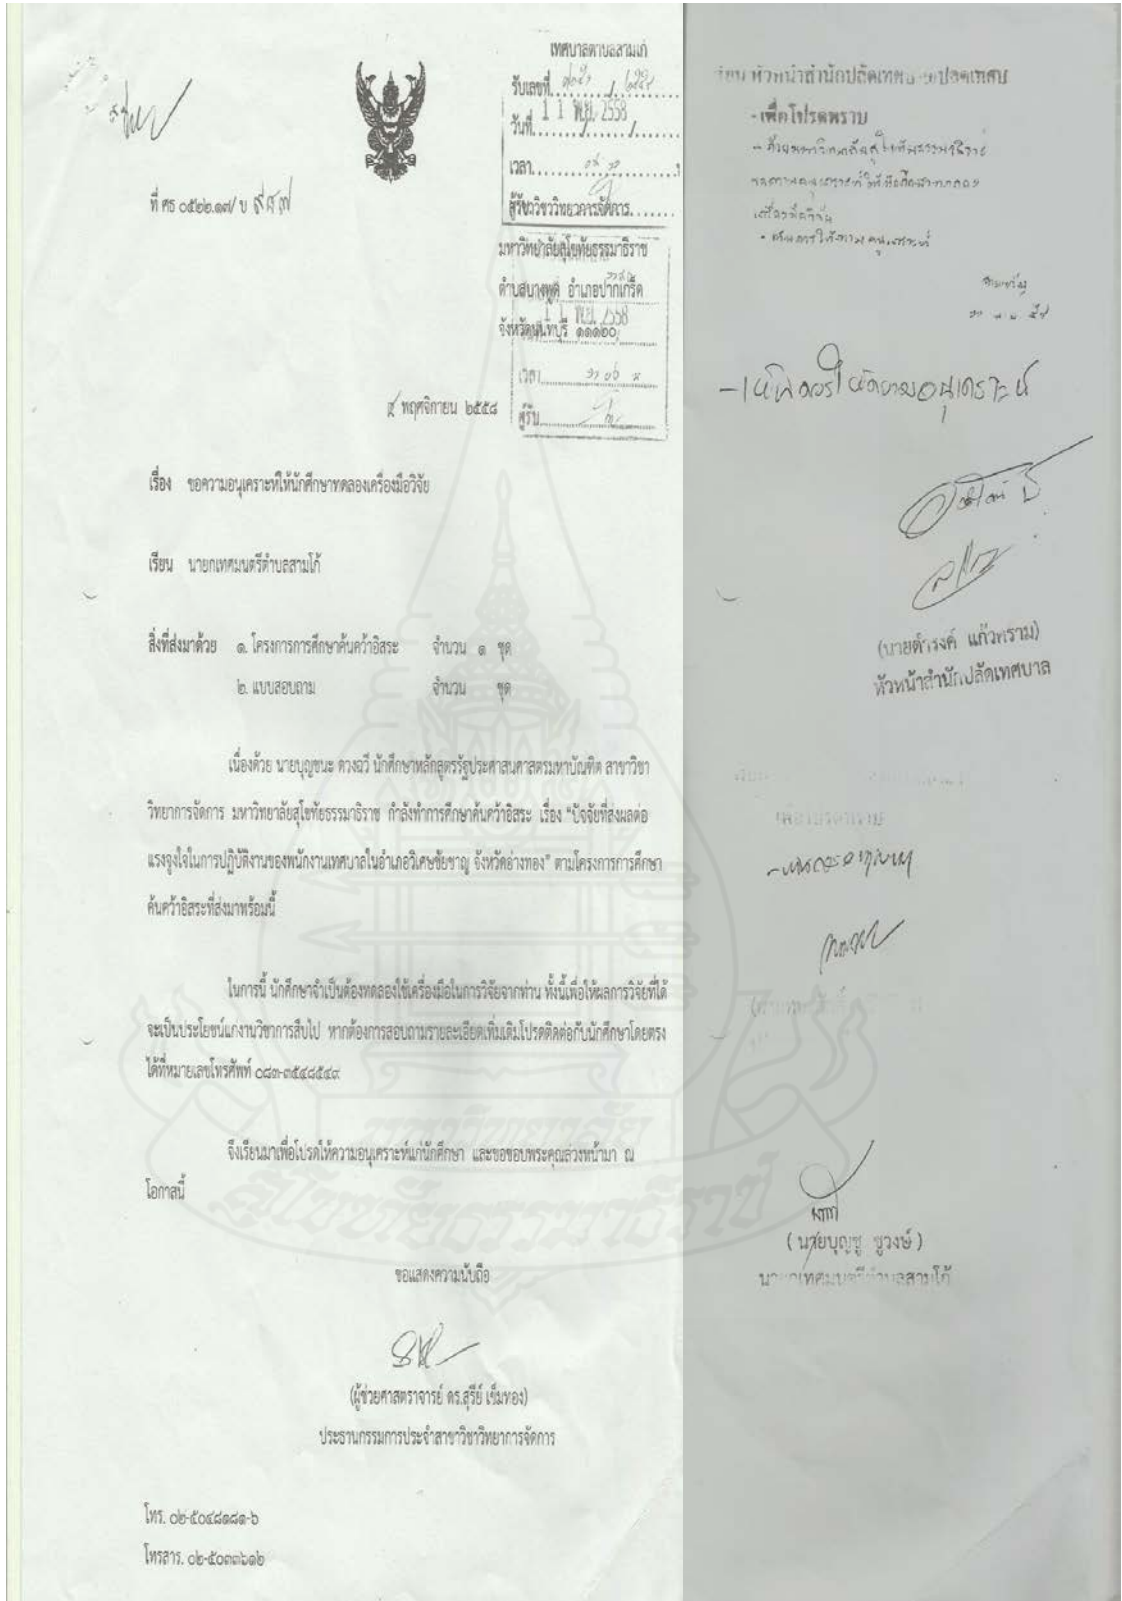 เทศบาลตำบลสามโก้
รับเลขที่
วันที่ 1 1 พ.ย. 2558
เวลา
ที่ ศธ ๐๕๒๒.๑๗/ บ ๙๕๗
สาขาวิชาวิทยาการจัดการ
มหาวิทยาลัยสุโขทัยธรรมาธิราช
ตำบลบางพูด อำเภอปากเกร็ด
1 1 พ.ย. 2558
จังหวัดนนทบุรี ๑๑๑๒๐
เวลา
ผู้รับ
พฤศจิกายน ๒๕๕๘
เรื่อง ขอความอนุเคราะห์ให้นักศึกษาทดลองเครื่องมือวิจัย
เรียน นายกเทศมนตรีตำบลสามโก้
สิ่งที่ส่งมาด้วย ๑. โครงการการศึกษาค้นคว้าอิสระ จำนวน ๑ ชุด
๒. แบบสอบถาม จำนวน ชุด
เนื่องด้วย นายบุญชนะ ดวงฉวี นักศึกษาหลักสูตรรัฐประศาสนศาสตรมหาบัณฑิต สาขาวิชา
วิทยาการจัดการ มหาวิทยาลัยสุโขทัยธรรมาธิราช กำลังทำการศึกษาค้นคว้าอิสระ เรื่อง “ปัจจัยที่ส่งผลต่อ
แรงจูงใจในการปฏิบัติงานของพนักงานเทศบาลในอำเภอวิเศษชัยชาญ จังหวัดอ่างทอง” ตามโครงการการศึกษา
ค้นคว้าอิสระที่ส่งมาพร้อมนี้
ในการนี้ นักศึกษาจำเป็นต้องทดลองใช้เครื่องมือในการวิจัยจากท่าน ทั้งนี้เพื่อให้ผลการวิจัยที่ได้
จะเป็นประโยชน์แก่งานวิชาการสืบไป หากต้องการสอบถามรายละเอียดเพิ่มเติมโปรดติดต่อกับนักศึกษาโดยตรง
ได้ที่หมายเลขโทรศัพท์ ๐๘๓-๓๕๔๘๕๔๙
จึงเรียนมาเพื่อโปรดให้ความอนุเคราะห์แก่นักศึกษา และขอขอบพระคุณล่วงหน้ามา ณ
โอกาสนี้
ขอแสดงความนับถือ
(ผู้ช่วยศาสตราจารย์ ดร.สุรีย์ เข็มทอง)
ประธานกรรมการประจำสาขาวิชาวิทยาการจัดการ
โทร. ๐๒-๕๐๔๘๑๘๑-๖
โทรสาร. ๐๒-๕๐๓๓๖๑๒
เรียน หัวหน้าสำนักปลัดเทศบาล
- เพื่อโปรดทราบ
- ด้วยมหาวิทยาลัยสุโขทัยธรรมาธิราช
ขอความอนุเคราะห์ให้นักศึกษาทดลอง
เครื่องมือวิจัย
- เห็นควรให้ความอนุเคราะห์
- เห็นควรให้ความอนุเคราะห์
(นายดำรงค์ แก้วพราม)
หัวหน้าสำนักปลัดเทศบาล
เพื่อโปรดทราบ
(นายบุญชู ชูวงษ์)
นายกเทศมนตรีตำบลสามโก้
มหาวิทยาลัย
สุโขทัยธรรมาธิราช